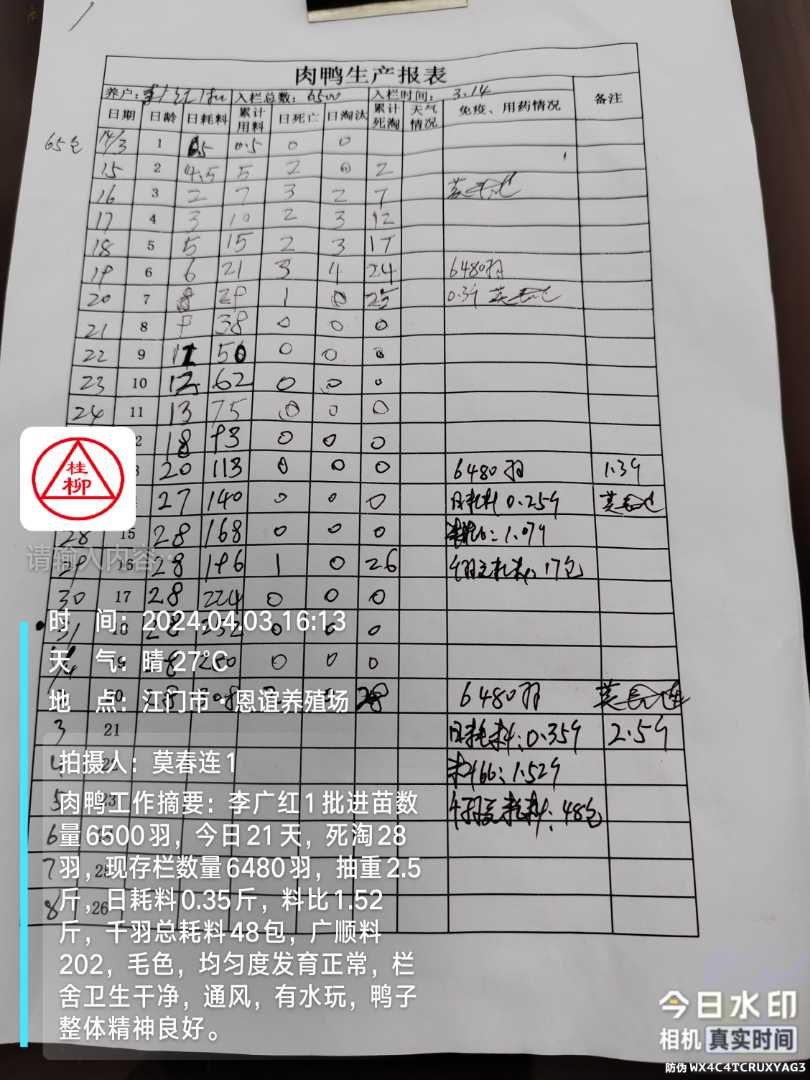 肉鸭生产报表
养户：李广红1批 入栏总数：6500 入栏时间：3.14
日期 日龄 日耗料 累计用料 日死亡 日淘汰 累计死淘 天气情况 免疫、用药情况 备注
65包 14/3 1 0.5 0 0
15 2 4.5 5 2 0 2
16 3 2 7 3 2 7 莫春连
17 4 3 10 2 3 12
18 5 5 15 2 3 17
19 6 6 21 3 4 24 6480羽
20 7 8 29 1 0 25 0.39 莫春连
21 8 9 38 0 0 0
22 9 12 50 0 0 0
23 10 12 62 0 0 0
24 11 13 75 0 0 0
2 18 93 0 0 0
3 20 113 0 0 0 6480羽 1.39
27 140 0 0 0 日耗料0.259 莫春连
28 15 28 168 0 0 0 料比：1.079
29 16 28 196 1 0 26 千羽总耗料：17包
30 17 28 224 0 0 0
31 18 28 252 0 0 0
9 28 280 0 0 0
20 28 308 28 6480羽 莫春连
3 21 日耗料：0.359 2.59
4 料比：1.529
5 23 千羽总耗料：48包
6
7
8 26
桂柳
请输入内容...
时 间：2024.04.03 16:13
天 气：晴 27℃
地 点：江门市·恩谊养殖场
拍摄人：莫春连1
肉鸭工作摘要：李广红1批进苗数
量6500羽，今日21天，死淘28
羽，现存栏数量6480羽，抽重2.5
斤，日耗料0.35斤，料比1.52
斤，千羽总耗料48包，广顺料
202，毛色，均匀度发育正常，栏
舍卫生干净，通风，有水玩，鸭子
整体精神良好。
今日水印
相机 真实时间
防伪 WX4C4TCRUXYAG3